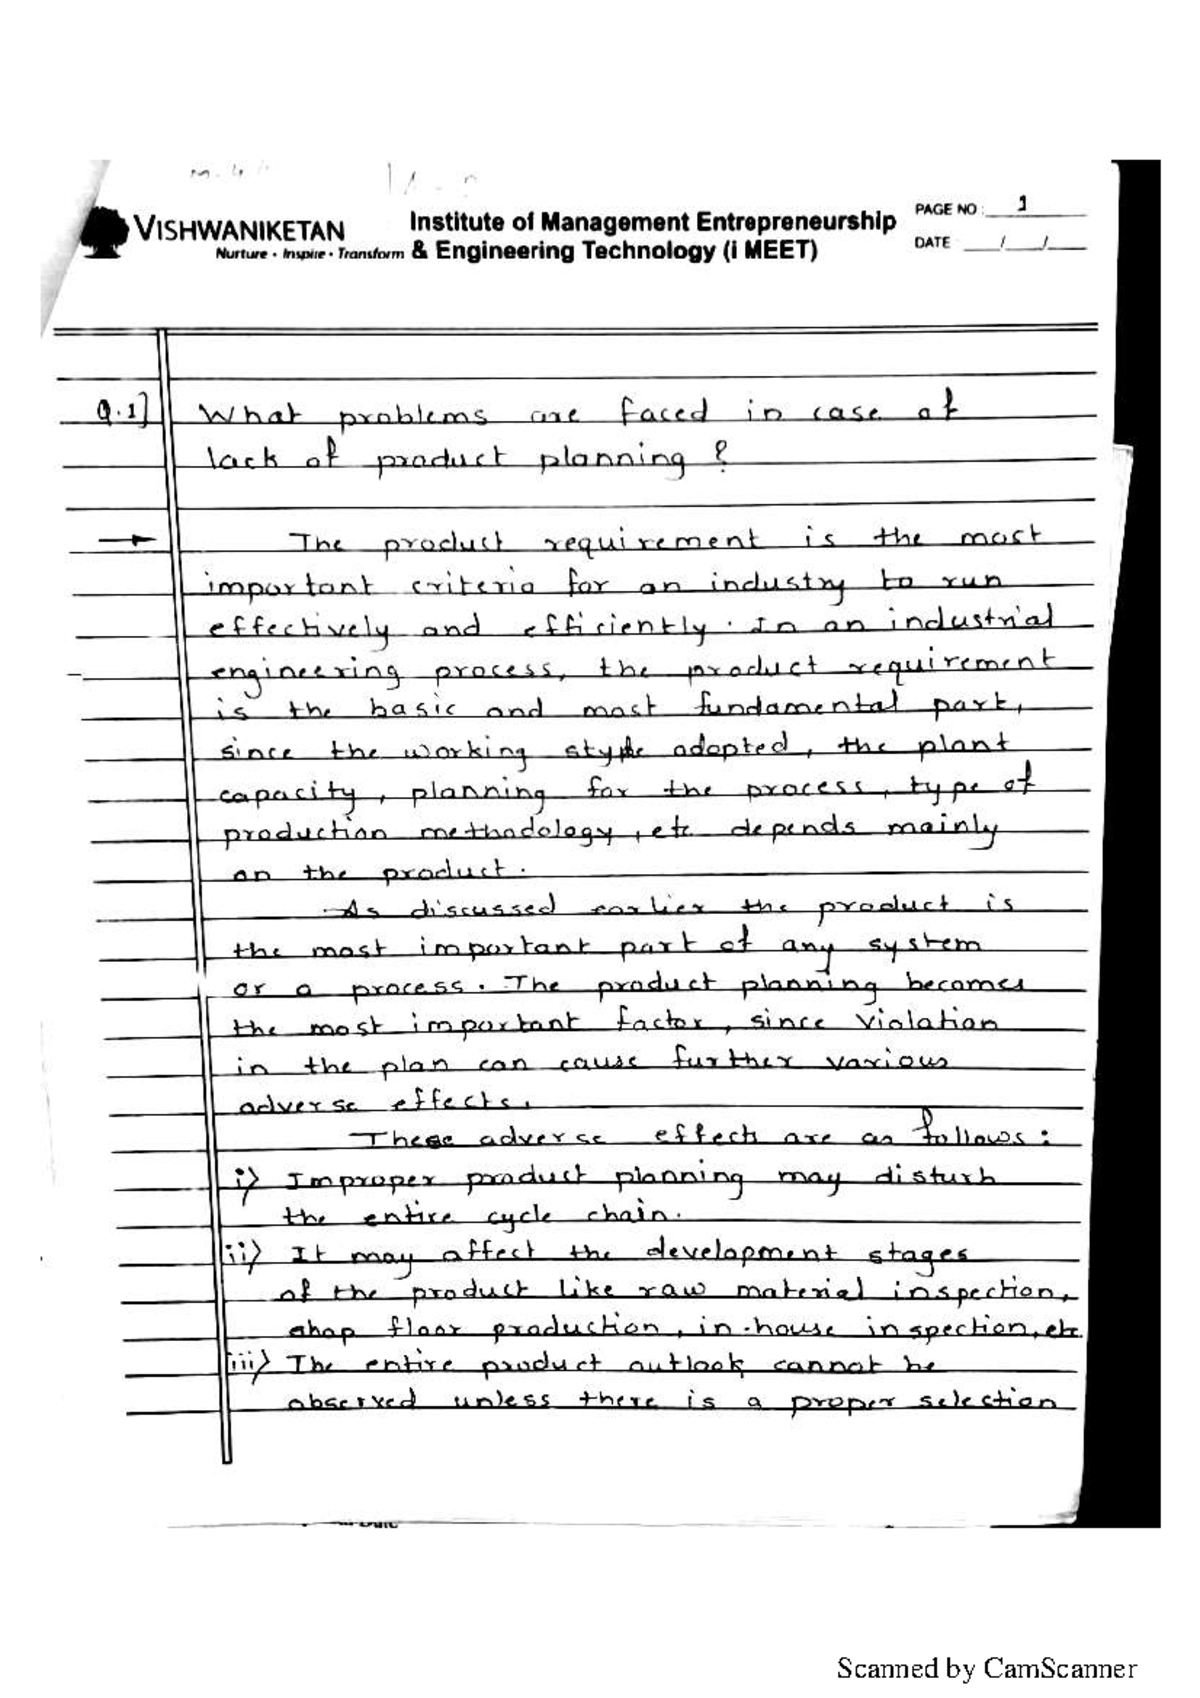 VISHWANIKETAN
Nurture • Inspire • Transform
Institute of Management Entrepreneurship
& Engineering Technology (i MEET)
PAGE NO : 1
DATE / /
Q.1] What problems are faced in case of
lack of product planning ?
→ The product requirement is the most
important criteria for an industry to run
effectively and efficiently. In an industrial
engineering process, the product requirement
is the basic and most fundamental part,
since the working style adopted, the plant
capacity, planning for the process, type of
production methodology, etc depends mainly
on the product.
As discussed earlier the product is
the most important part of any system
or a process. The product planning becomes
the most important factor, since violation
in the plan can cause further various
adverse effects.
These adverse effects are as follows:
i) Improper product planning may disturb
the entire cycle chain.
ii) It may affect the development stages
of the product like raw material inspection,
shop floor production, in-house inspection, etc
iii) The entire product outlook cannot be
observed unless there is a proper selection
Scanned by CamScanner